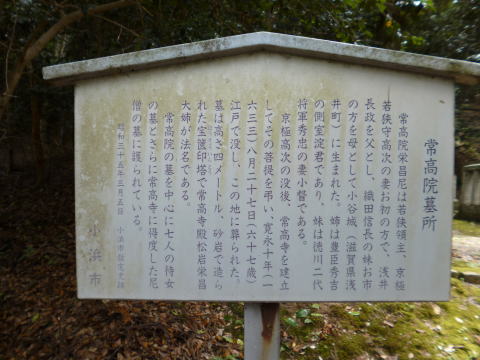 常高院墓所
常高院栄昌尼は若狭領主、京極
若狭守高次の妻お初の方で、浅井
長政を父とし、織田信長の妹お市
の方を母として小谷城(滋賀県浅
井町)に生まれた。姉は豊臣秀吉
の側室淀君であり、妹は徳川二代
将軍秀忠の妻小督である。
京極高次の没後、常高寺を建立
してその菩提を弔い、寛永十年(一
六三三)八月二十七日(六十七歳)
江戸で没し、この地に葬られた。
墓は高さ四メートル、砂岩で造ら
れた宝篋印塔で常高寺殿松岩栄昌
大姉が法名である。
常高院の墓を中心に七人の侍女
の墓とさらに常高寺に得度した尼
僧の墓に護られている。
昭和三十五年三月五日 小浜市指定史跡
小浜市